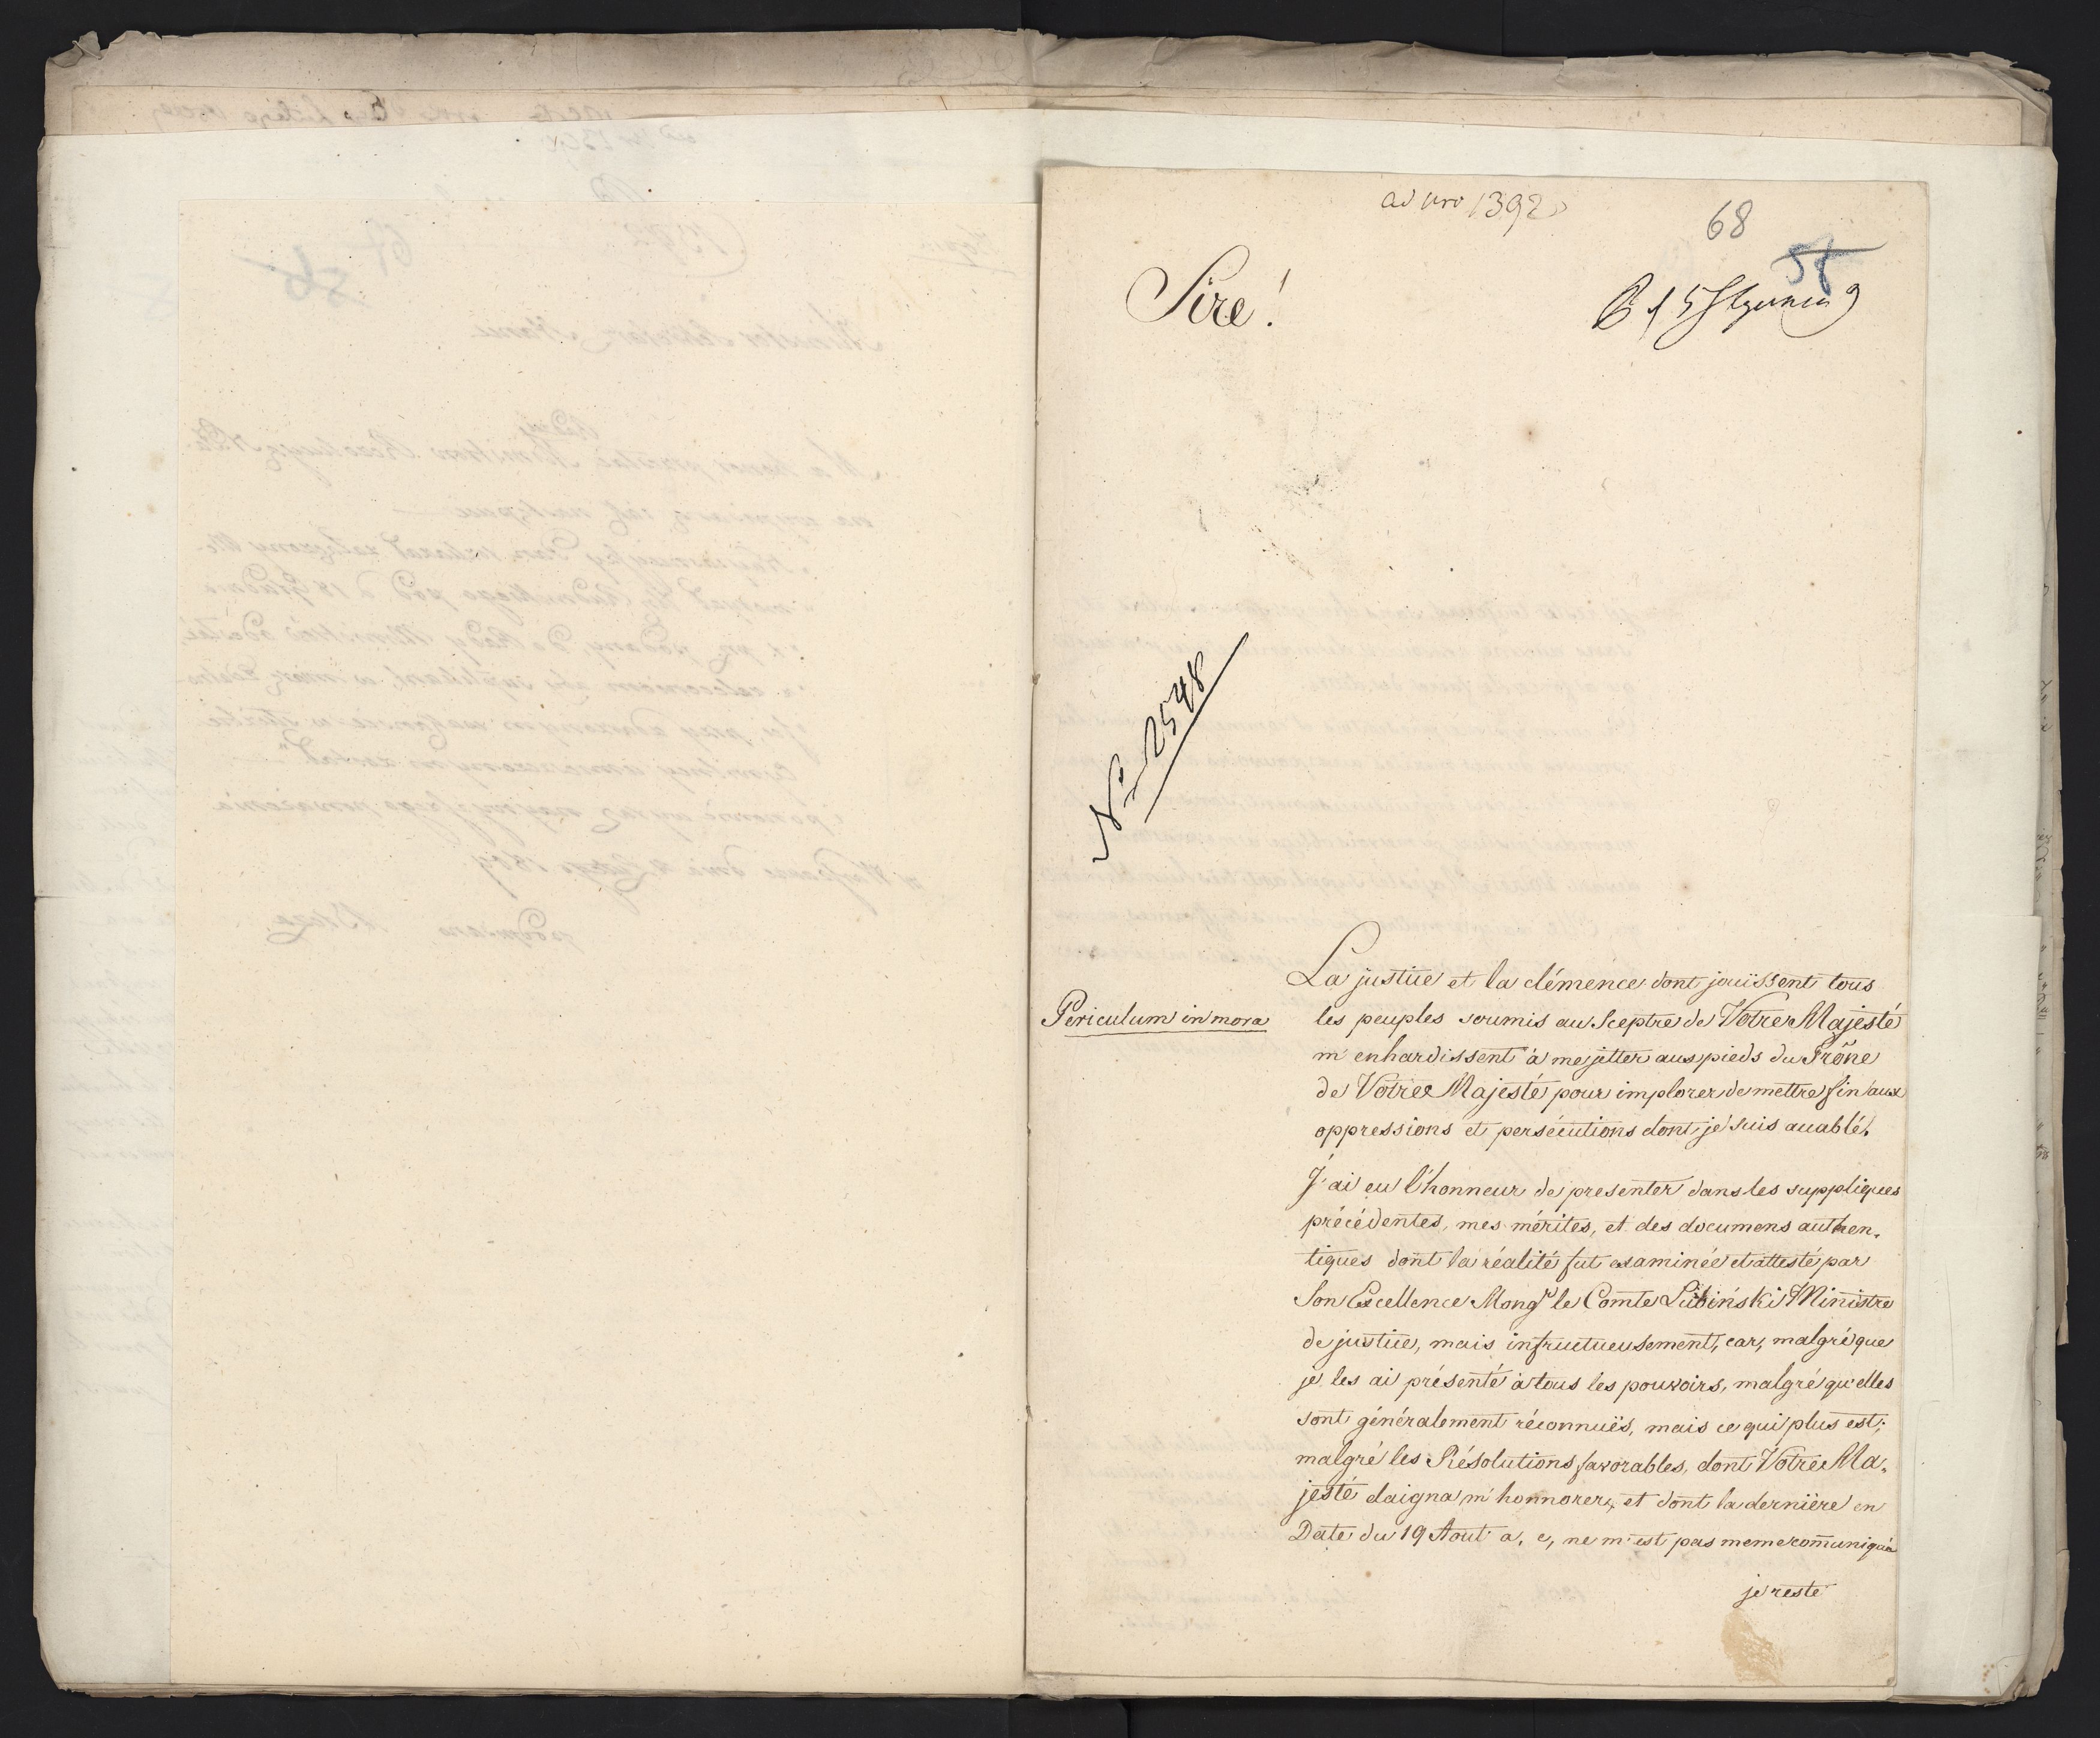 ad nro 1392
68
58
Sire!
№ 2548
Periculum in mora
La justice et la clémence dont jouissent tous
les peuples soumis au Sceptre de Votre Majesté
m'enhardissent à me jetter aus pieds du Trône
de Votre Majesté pour implorer de mettre fin aux
oppressions et persécutions dont je suis accablé.
J'ai eu l'honneur de presenter dans les suppliques
précédentes, mes mérites, et des documens authen-
tiques dont la réalité fut examinée et attesté par
Son Excellence Mongr le Comte Łubiński Ministre
de justice, mais infructueusement, car, malgré que
je les ai présenté à tous les pouvoirs, malgré qu'elles
sont généralement réconnuës, mais ce qui plus est;
malgré les Résolutions favorables, dont Votre Ma-
jesté daigna m'honnorer, et dont la dernière en
Date du 19 Aout a. c, ne m'est pas meme com̄uniquée
je reste